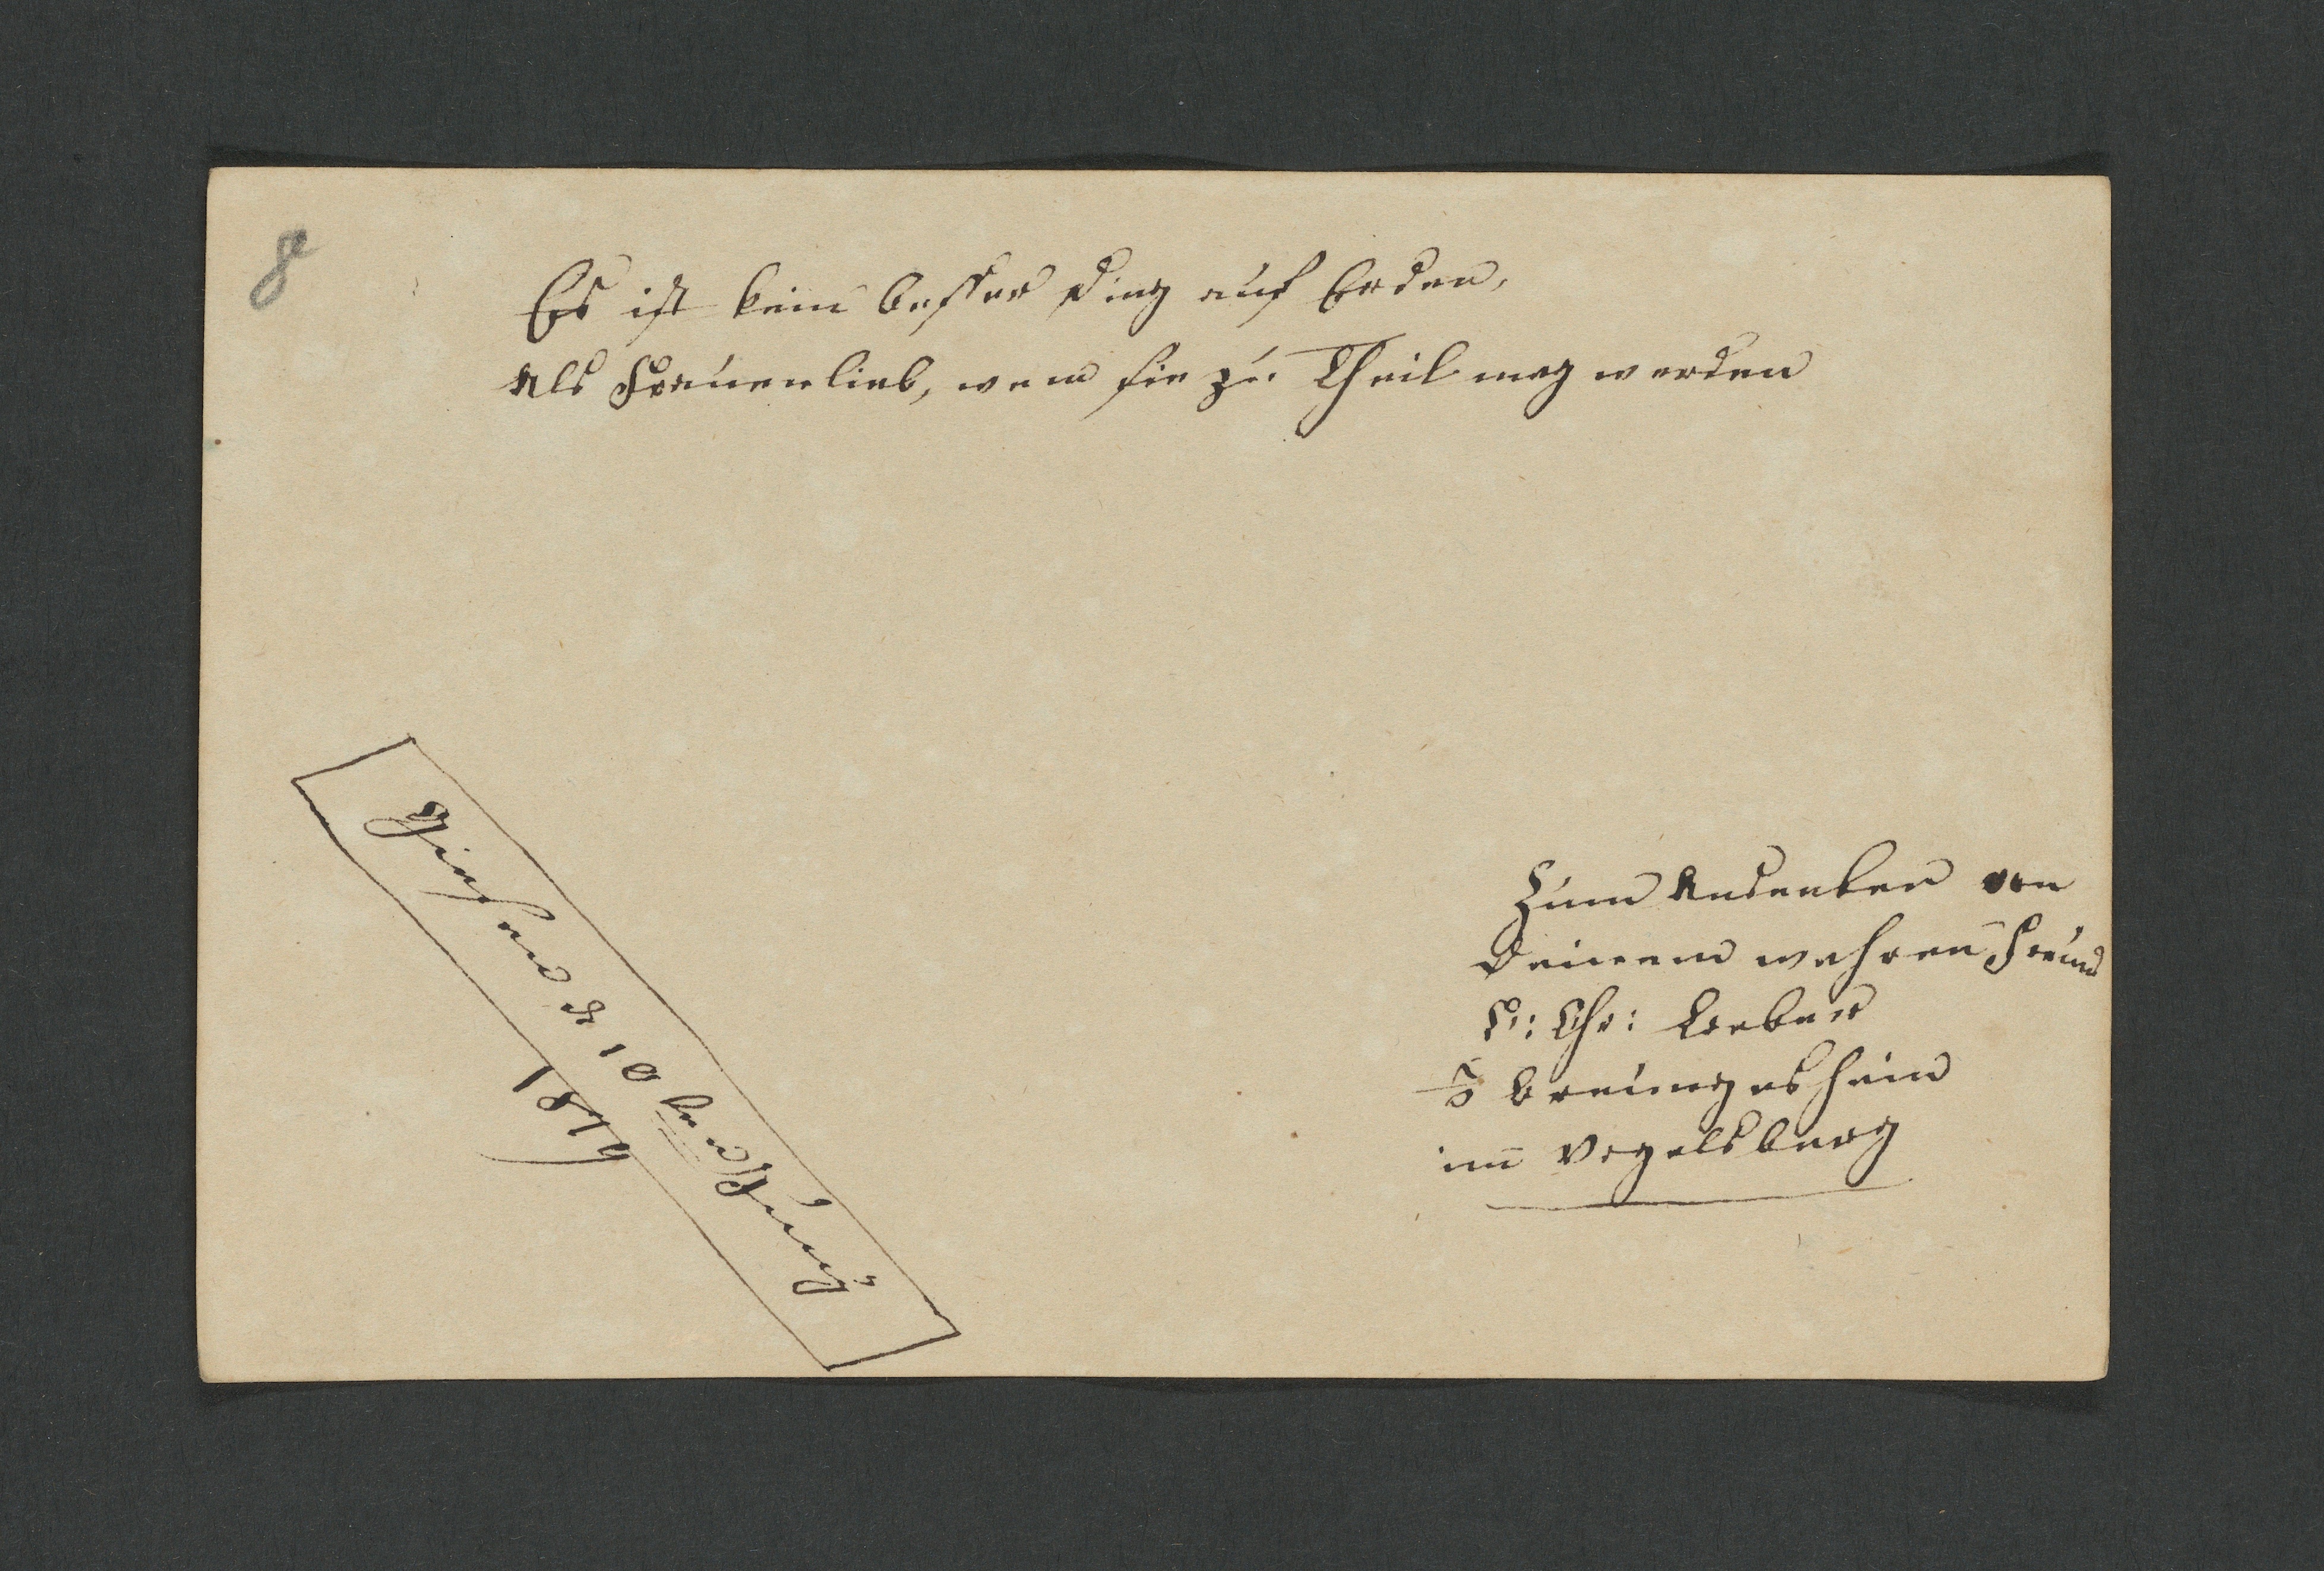 8
Es ist kein besser Ding auf Erden,
Als Frauenlieb, wem sie zu Theil mag werden
Giesen d 10
1819
Zum Andenken von
Deinem wahren Freund
Chr:
Breungeshain
im Vogelsberg